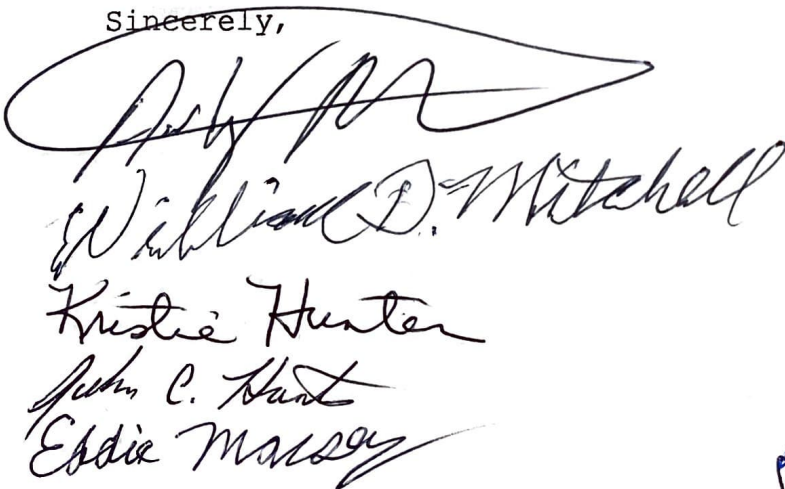 Sincerely,
William D. Mitchell
Kristie Hunter
John C. Hunt
Eddie